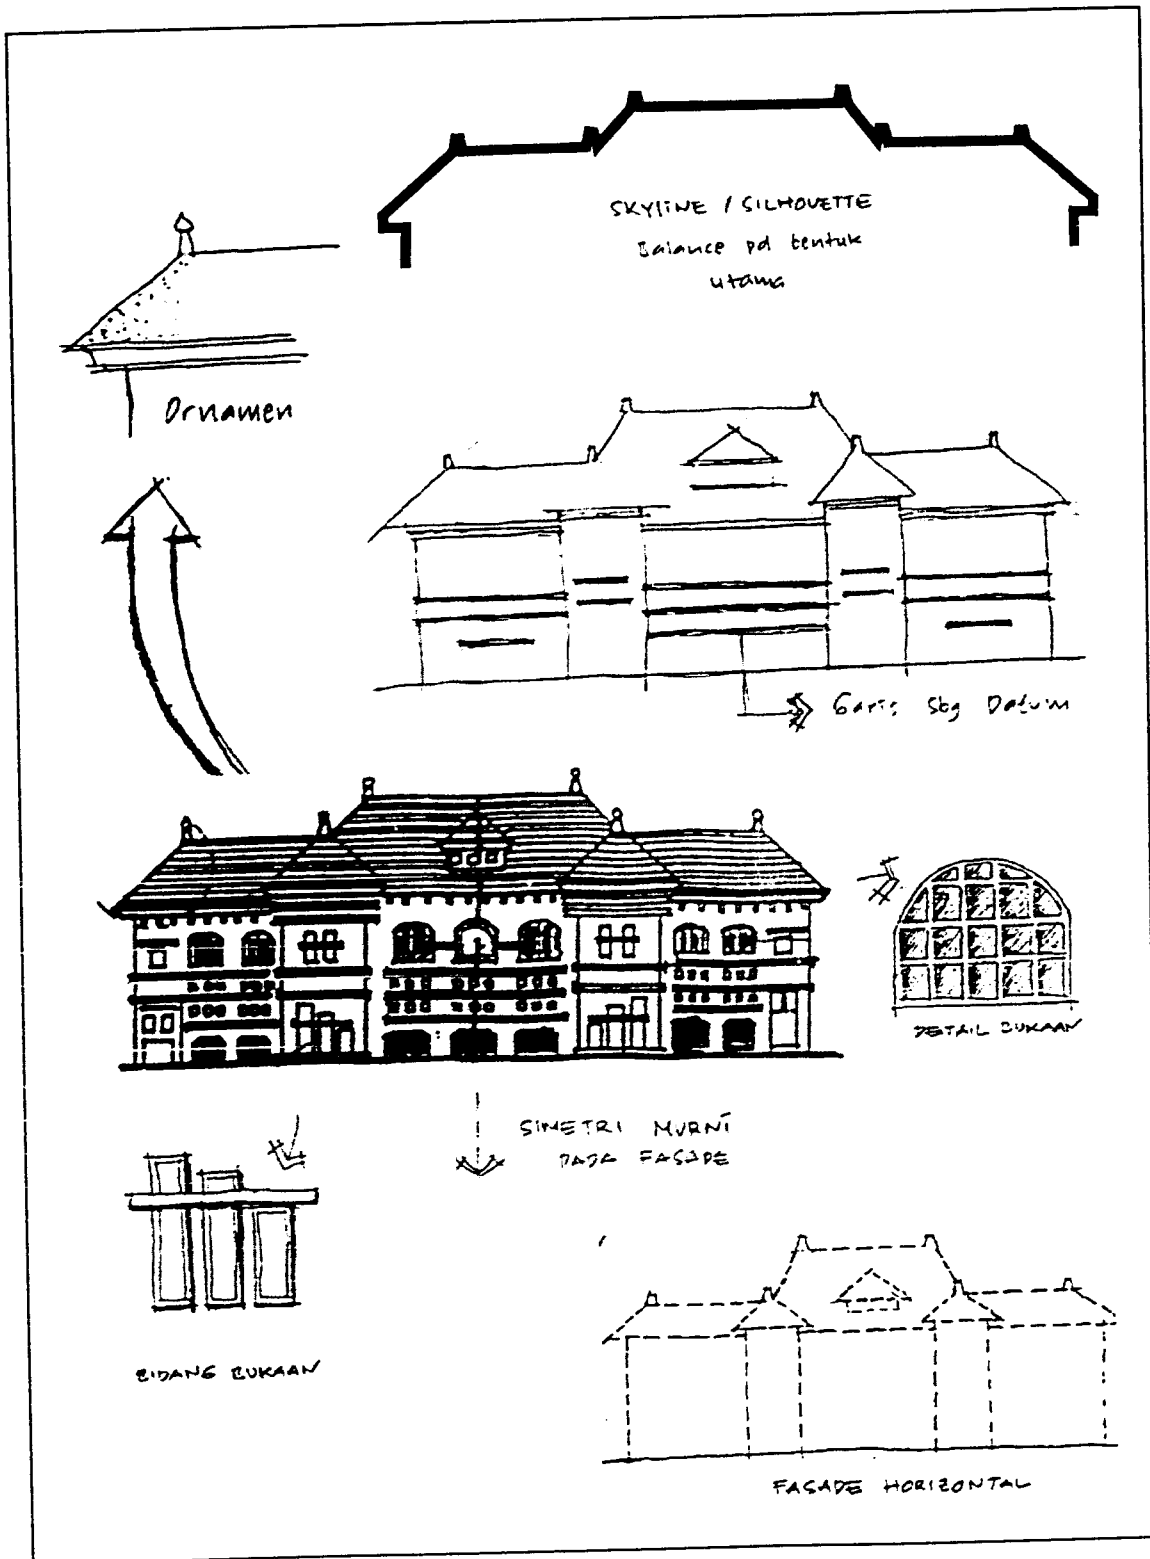 SKYLINE / SILHOUETTE
Balance pd bentuk
utama
Ornamen
Garis sbg Datum
DETAIL BUKAAN
SIMETRI MURNI
PADA FASADE
BIDANG BUKAAN
FASADE HORIZONTAL